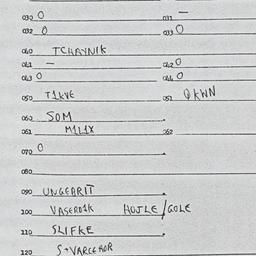 030 O 031 —
032 O 033 O
040 TCHAYNIK
041 — 042 O
043 O 044 O
050 T1KVE 051 QKWN
060 SOM
061 M1L1X 062
070 O
080
090 UNGEARIT
100 VASERD1K HOJLE/GOLE
110 SLIFKE
120